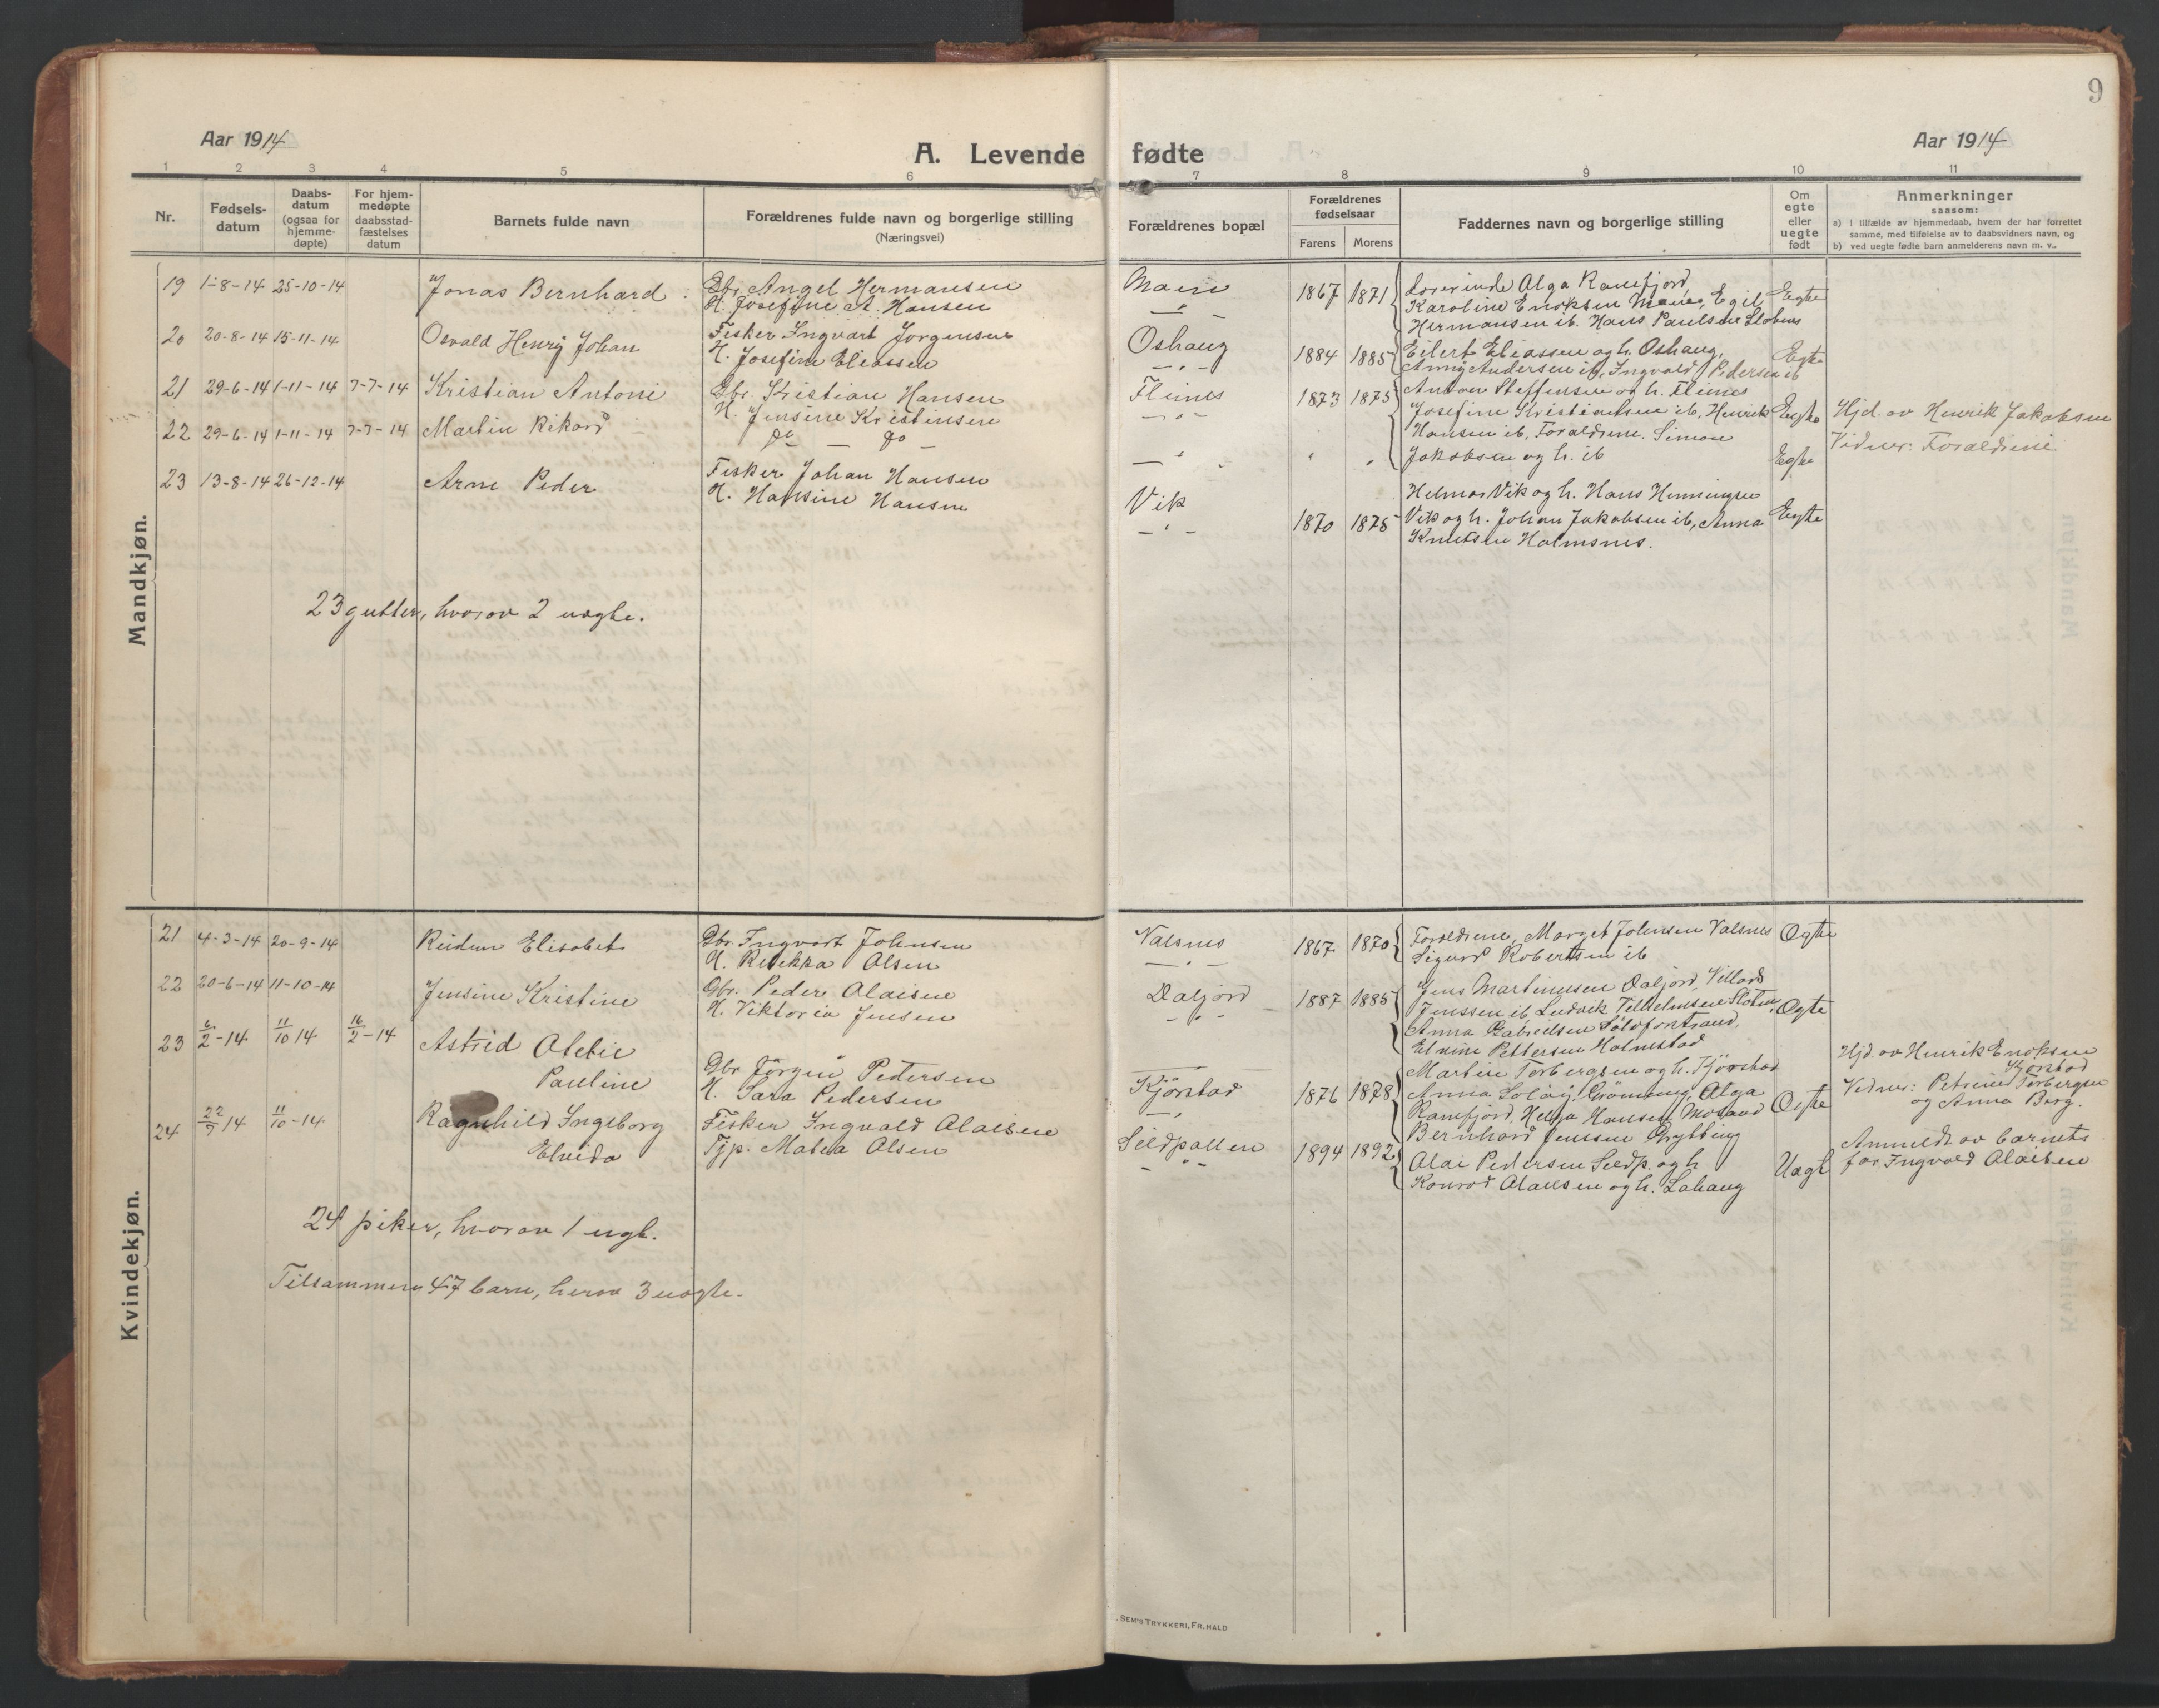 9
Aar 1914
A. Levende fødte
Aar 1914
1 2 3 4 5 6 7 8 9 10 11
Nr.
Fødsels-
datum
Daabs-
datum
(ogsaa for
hjemme-
døpte)
For hjem-
medøpte
daabsstad-
fæstelses
datum
Barnets fulde navn
Forældrenes fulde navn og borgerlige stilling
(Næringsvei)
Forældrenes bopæl
Forældrenes
fødselsaar
Farens Morens
Faddernes navn og borgerlige stilling
Om
egte
eller
uegte
født
Anmerkninger
saasom:
a) i tilfælde av hjemmedaab, hvem der har forrettet
samme, med tilføielse av to daabsvidners navn, og
b) ved uegte fødte barn anmelderens navn m. v..
Mandkjøn.
19 1-8-14 25-10-14 Jonas Bernhard
Gbr. Angel Hermansen
H. Josefine A. Hansen
1867 1871
Lærerinde Alga Ranefjord,
Karoline Enoksen Egil
Hermansen ib. Hans Paulsen
Egte
20 20-8-14 15-11-14 Osvald Henrij Johan
Fisker Ingvart Jørgensen
H. Josefine Eliassen
Oshaug
1884 1885
Eilert Eliassen og h. Oshaug,
Anny Andersen ib, Ingvald Pedersen ib
Egte
21 29-6-14 1-11-14 7-7-14 Kristian Antoni
Gbr. Kristian Hansen
H. Jensine Kristensen
Fleines
1873 1875
Anton Steffensen og h. Fleines
Josefine Kristiansen ib, Henrik
Hansen ib, Forældrene. Simon
Jakobsen og h. ib
Egte
Hjd. av Henrik Jakobsen
Vidner: Forældrene
22 29-6-14 1-11-14 7-7-14 Martin Rikard
do — do
Egte
23 13-8-14 26-12-14 Arne Peder
Fisker Johan Hansen
H. Hansine Hansen
Vik
1870 1875
Helmer Vik og h. Hans Henningsen
Vik og h. Johan Jakobsen ib, Anna
Knutsen Holmsnes.
Egte
23 gutter, hvorav 2 uegte.
Kvindekjøn.
21 4-3-14 20-9-14 Reidun Elisabet
Gbr. Ingvart Johnsen
H. Rebekka Olsen
Valsnes
1867 1870
Forældrene, Marget Johnsen Valsnes
Sigurd Robertsen ib
Egte
22 20-6-14 11-10-14 Jensine Kristine
Gbr. Peder Olaisen
H. Viktoria Jensen
Daljord
1887 1885
Jens Martinussen Daljord, Villard
Jenssen ib Ludvik
Anna Gabrielsen
Elvine Pettersen Holmstad
Egte
23 6/2-14 11/10 14 16/2-14 Astrid Otelie
Pauline
Gbr Jørgen Pedersen
H. Sara Pedersen
Kjørstad
1876 1878
Martin Torbergsen og h. Kjørstad
Anna Solöy, Alga
Ranefjord. Helga Hansen
Egte
Hjd. av Henrik Enoksen
Kjørstad
Vidner: Petrine Torbergsen
og Anna Berg.
24 22/7 14 11/10-14 Ragnhild Ingeborg
Elvida
Fisker Ingvald Olaisen
Tjp. Matea Olsen
Sildpollen
1894 1892
Bernhard Jenssen Grytting
Olai Pedersen Sildp. og h
Konrad Olaussen og h.
Uegte
Anmeldt av barnets
far Ingvald Olaisen
24 piker, hvorav 1 uegt.
Tilsammen 47 barn, herav 3 uegte.
SEM'S TRYKKERI, FR. HALD